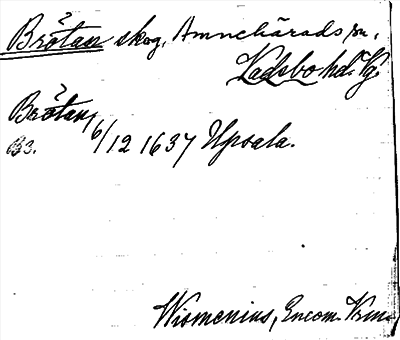 Brötan skog, Amnehärads sn,
Vadsbo hd. Vg.
Brötan,
B3. 6/12 1637 Upsala.
Wismenius, Encom. Verm.